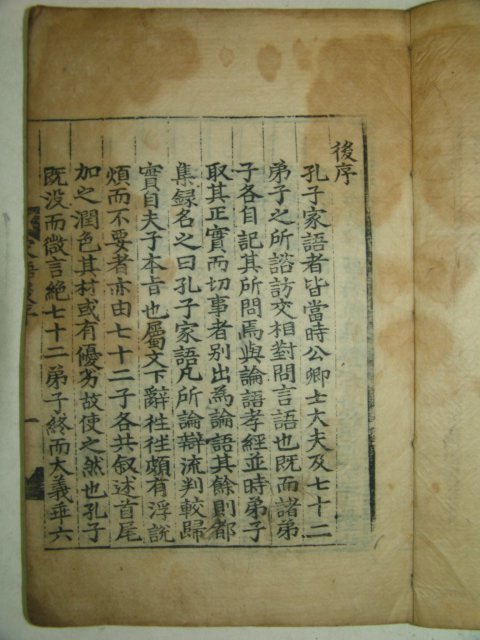 後序
孔子家語者皆當時公卿士大夫及七十二
弟子之所諮訪交相對問言語也既而諸弟
子各自記其所問焉與論語孝經並時弟子
取其正實而切事者別出為論語其餘則都
集録名之曰孔子家語凡所論辯流判較歸
實自夫子本旨也屬文下辭徃徃頗有浮説
煩而不要者亦由七十二子各共叙述首尾
加之潤色其材或有優劣故使之然也孔子
既没而微言絶七十二弟子終而大義乖六